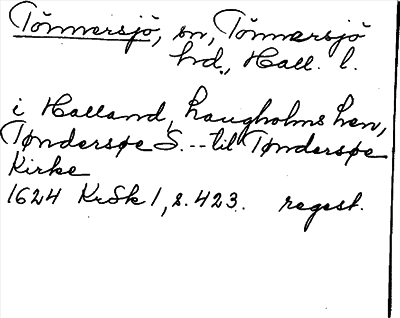 Tönnersjö, sn, Tönnersjö
hd., Hall. l.
i Halland, Laugholms Len,
Tøndersøe S. -- til Tøndersøe
Kirke
1624 KrSk 1, s. 423. regest.